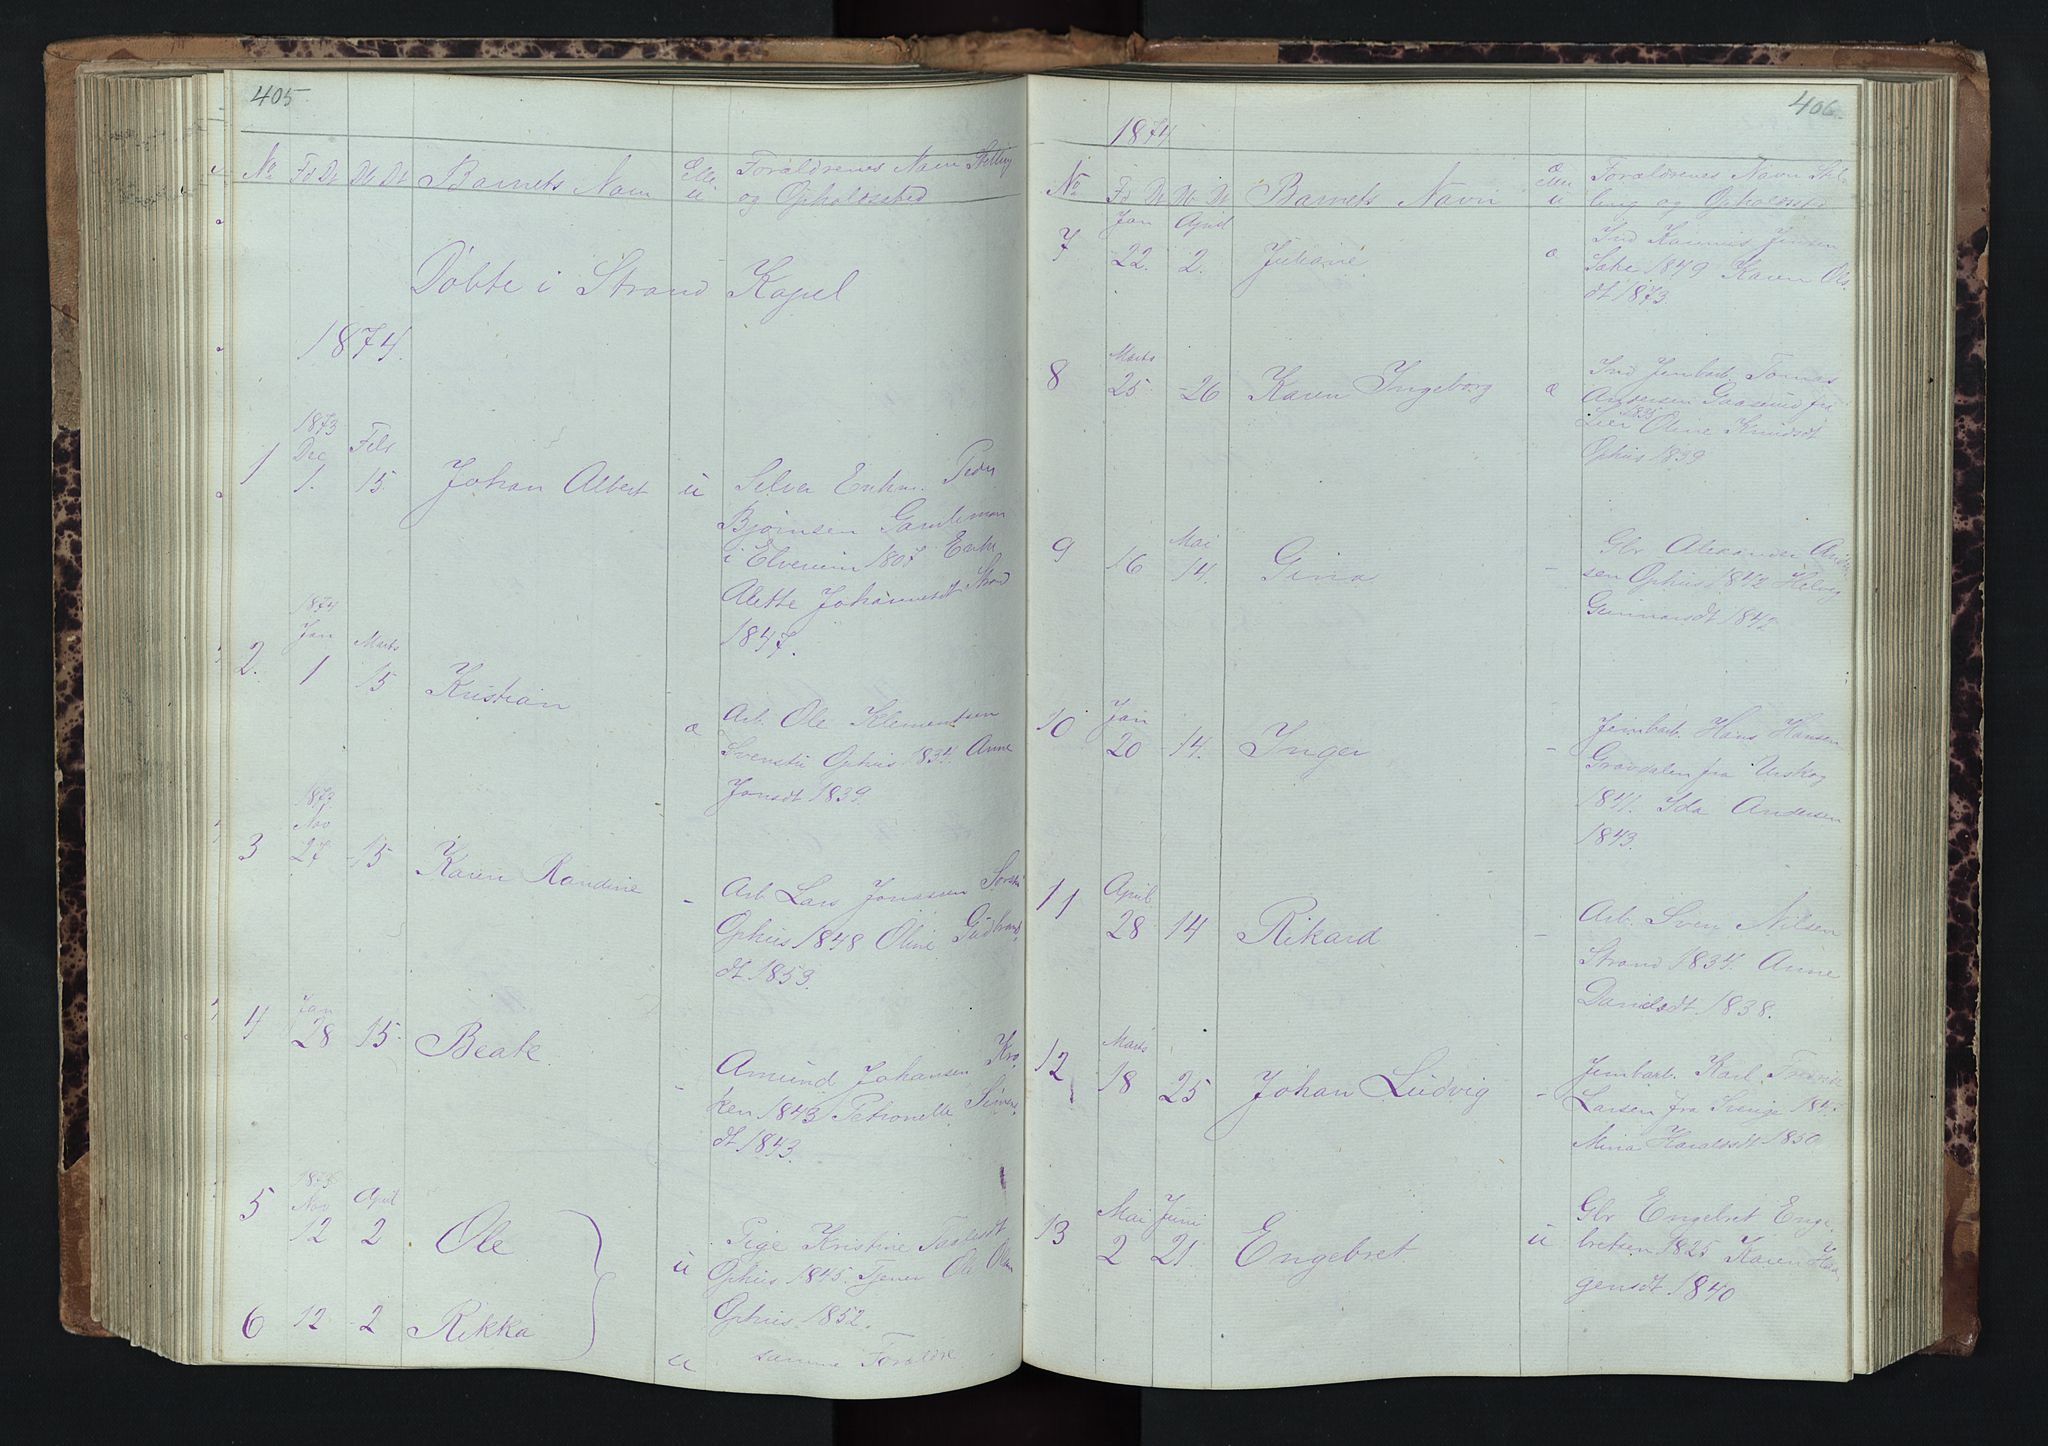 405
No Fd Dt Db Dt Barnets Navn Ekte Forældrenes Navn Stilling
u og Opholdssted
Døbte i Strand Kapel
1874.
1873
Dec Feb
1 1. 15. Johan Albert u Selver Enkm. Peder
Bjørnsen
i Elverum 1807 Enke
Alette Johannesdt Strand
1847.
1874
Jan Marts
2. 1 15 Kristian
æ Arb. Ole Klementsen
Ophus 1834. Anne
Jonsdt 1839.
1873
Nov
3 27 -15 Karen Randine
- Arb. Lars Jonassen
Ophus 1848 Oline Gudbrands
dt 1853.
Jan
4 28 15. Beate
- Amund Johansen Kro
ken 1843 Petronelle Simens
dt 1843.
1873
Nov April
5 12 2 Ole
u Pige Kristine
Ophus 1845. Tjener Ole Olsen
Ophus 1852.
6 12 2 Rikka
u samme Forældre
406.
1874
No Fd Dt Db Dt Barnets Navn Ekte Forældrenes Navn Stil-
u ling og Opholdssted
Jan April
7 22. 2. Juliane æ Ind Karenus Jensen
Sætre 1849 Karen Ols
dt 1873.
Marts
8 25 -26 Karen Ingeborg æ Ind Jernbarb. Tomas
Andersen Gaasund fra
Lier 1835 Oline Knudsdt
Ophus 1839
Mai
9 16 14. Gina - Gbr Alexander Ander
sen Ophus 1842 Helvig
Gunnarsdt 1842
Jan
10 20 -14. Inger - Jernbarb. Hans Hansen
Gravdalen fra Urskog
1841. Ida Andersen
1843.
April
11 28 14 Rikard - Arb. Sven Nilsen
Strand 1834. Anne
Danielsdt 1838.
Marts
12 18 25 Johan Ludvig - Jernbarb. Karl Fredrik
Larsen fra Sverige
Mina Haraldsdt 1850
Mai Juni
13 2 21. Engebret u Gbr Engebret Enge
bretsen 1825 Karen Haa
gensdt 1840